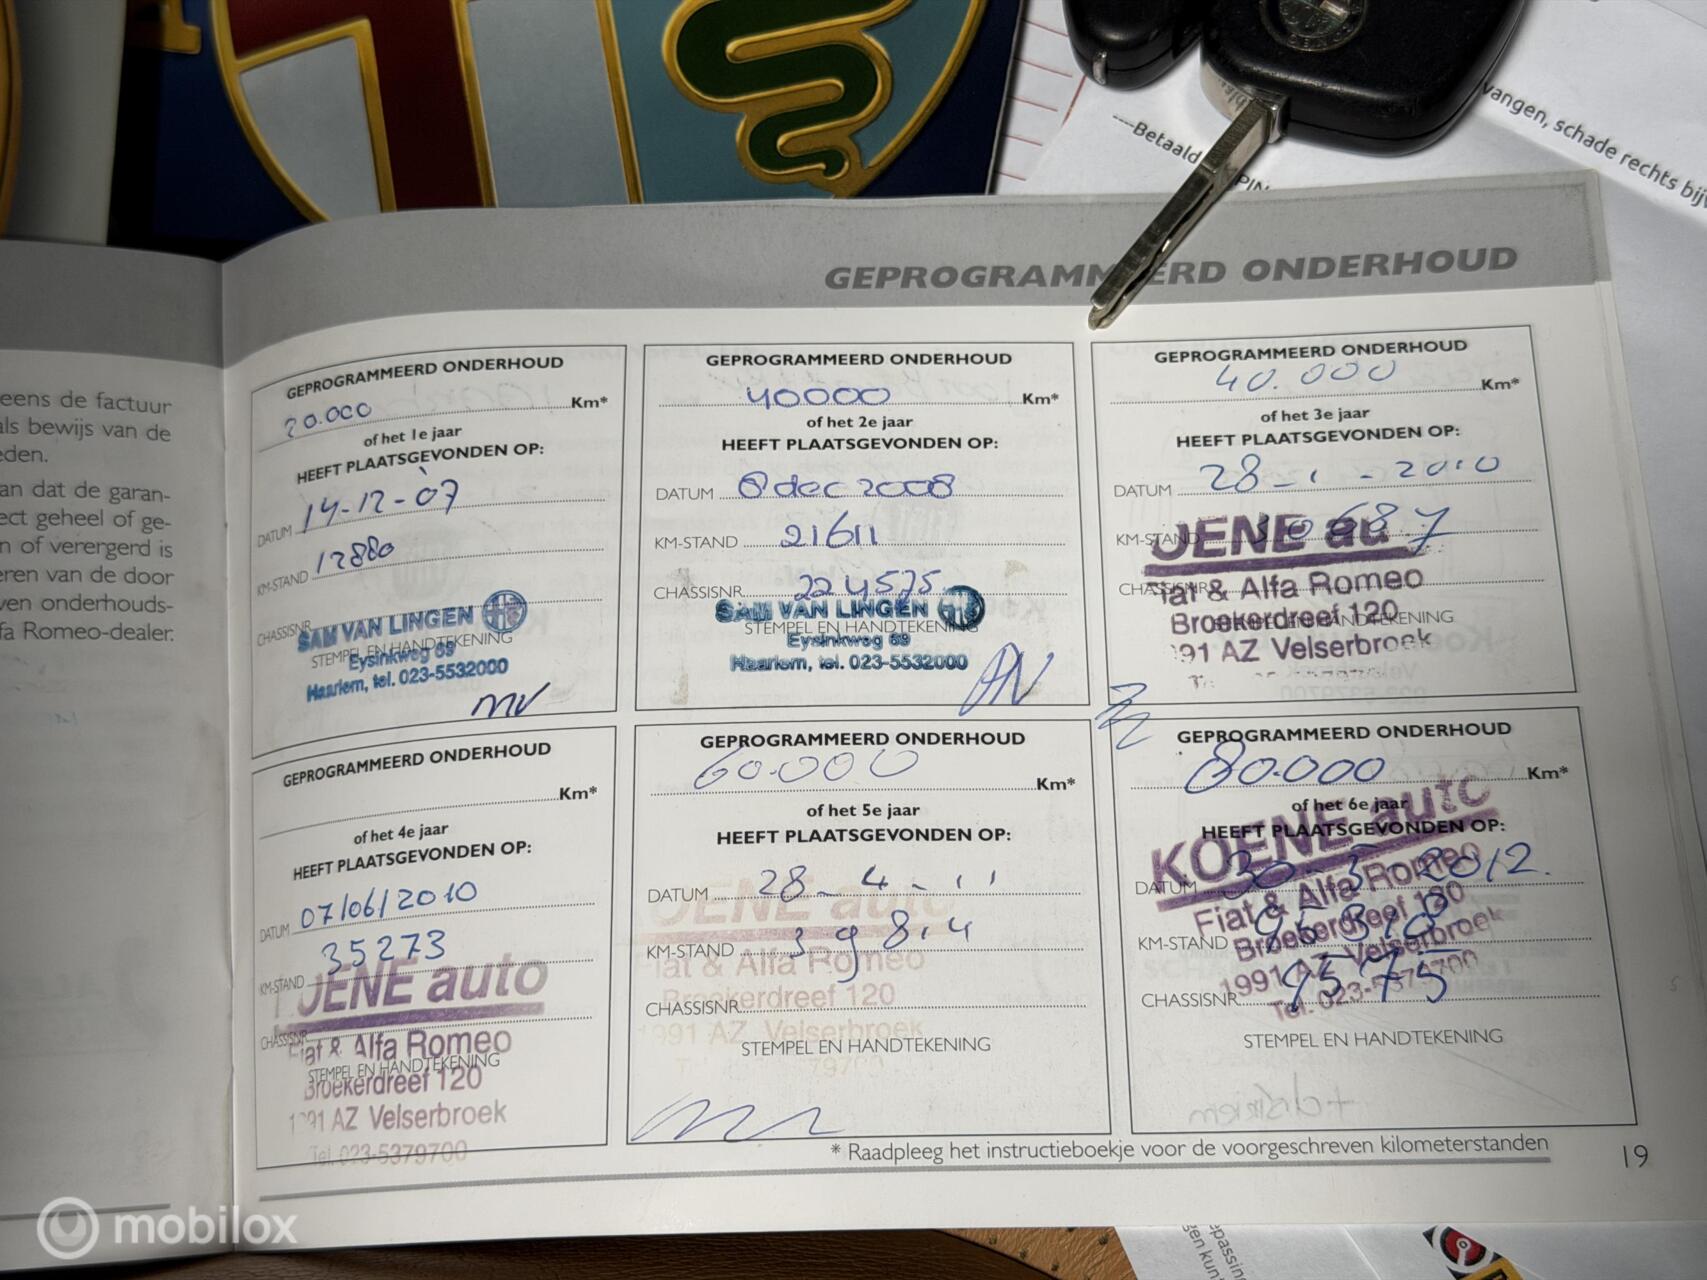 vangen, schade rechts bijv
----Betaald
PIN
eens de factuur
als bewijs van de
eden.
an dat de garan-
ect geheel of ge-
n of verergerd is
eren van de door
ven onderhouds-
fa Romeo-dealer.
GEPROGRAMMEERD ONDERHOUD
GEPROGRAMMEERD ONDERHOUD
20.000 Km*
of het 1e jaar
HEEFT PLAATSGEVONDEN OP:
DATUM 14-12-07
KM-STAND 12880
CHASSISNR.
SAM VAN LINGEN
STEMPEL EN HANDTEKENING
Eysinkweg 69
Haarlem, tel. 023-5532000
GEPROGRAMMEERD ONDERHOUD
40000 Km*
of het 2e jaar
HEEFT PLAATSGEVONDEN OP:
DATUM 8 dec 2008
KM-STAND 21611
CHASSISNR. 224575
SAM VAN LINGEN
STEMPEL EN HANDTEKENING
Eysinkweg 69
Haarlem, tel. 023-5532000
GEPROGRAMMEERD ONDERHOUD
40.000 Km*
of het 3e jaar
HEEFT PLAATSGEVONDEN OP:
DATUM 28-1-2010
KM-STAND 30687
JENE au
CHASSISNR.
iat & Alfa Romeo
Broekerdreef 120
STEMPEL EN HANDTEKENING
91 AZ Velserbroek
GEPROGRAMMEERD ONDERHOUD
Km*
of het 4e jaar
HEEFT PLAATSGEVONDEN OP:
DATUM 07/06/2010
KM-STAND 35273
JENE auto
CHASSISNR.
iat & Alfa Romeo
STEMPEL EN HANDTEKENING
Broekerdreef 120
1991 AZ Velserbroek
Tel. 023-5379700
GEPROGRAMMEERD ONDERHOUD
60.000 Km*
of het 5e jaar
HEEFT PLAATSGEVONDEN OP:
DATUM 28-4-11
JENE auto
KM-STAND 39814
iat & Alfa Romeo
Broekerdreef 120
CHASSISNR.
1991 AZ Velserbroek
STEMPEL EN HANDTEKENING
79700
GEPROGRAMMEERD ONDERHOUD
80.000 Km*
of het 6e jaar
KOENE auto
HEEFT PLAATSGEVONDEN OP:
DATUM 30-5-2012.
Fiat & Alfa Romeo
KM-STAND
Broekerdreef 120
1991 AZ Velserbroek
CHASSISNR. 9575
Tel. 023-5379700
STEMPEL EN HANDTEKENING
* Raadpleeg het instructieboekje voor de voorgeschreven kilometerstanden
19
mobilox